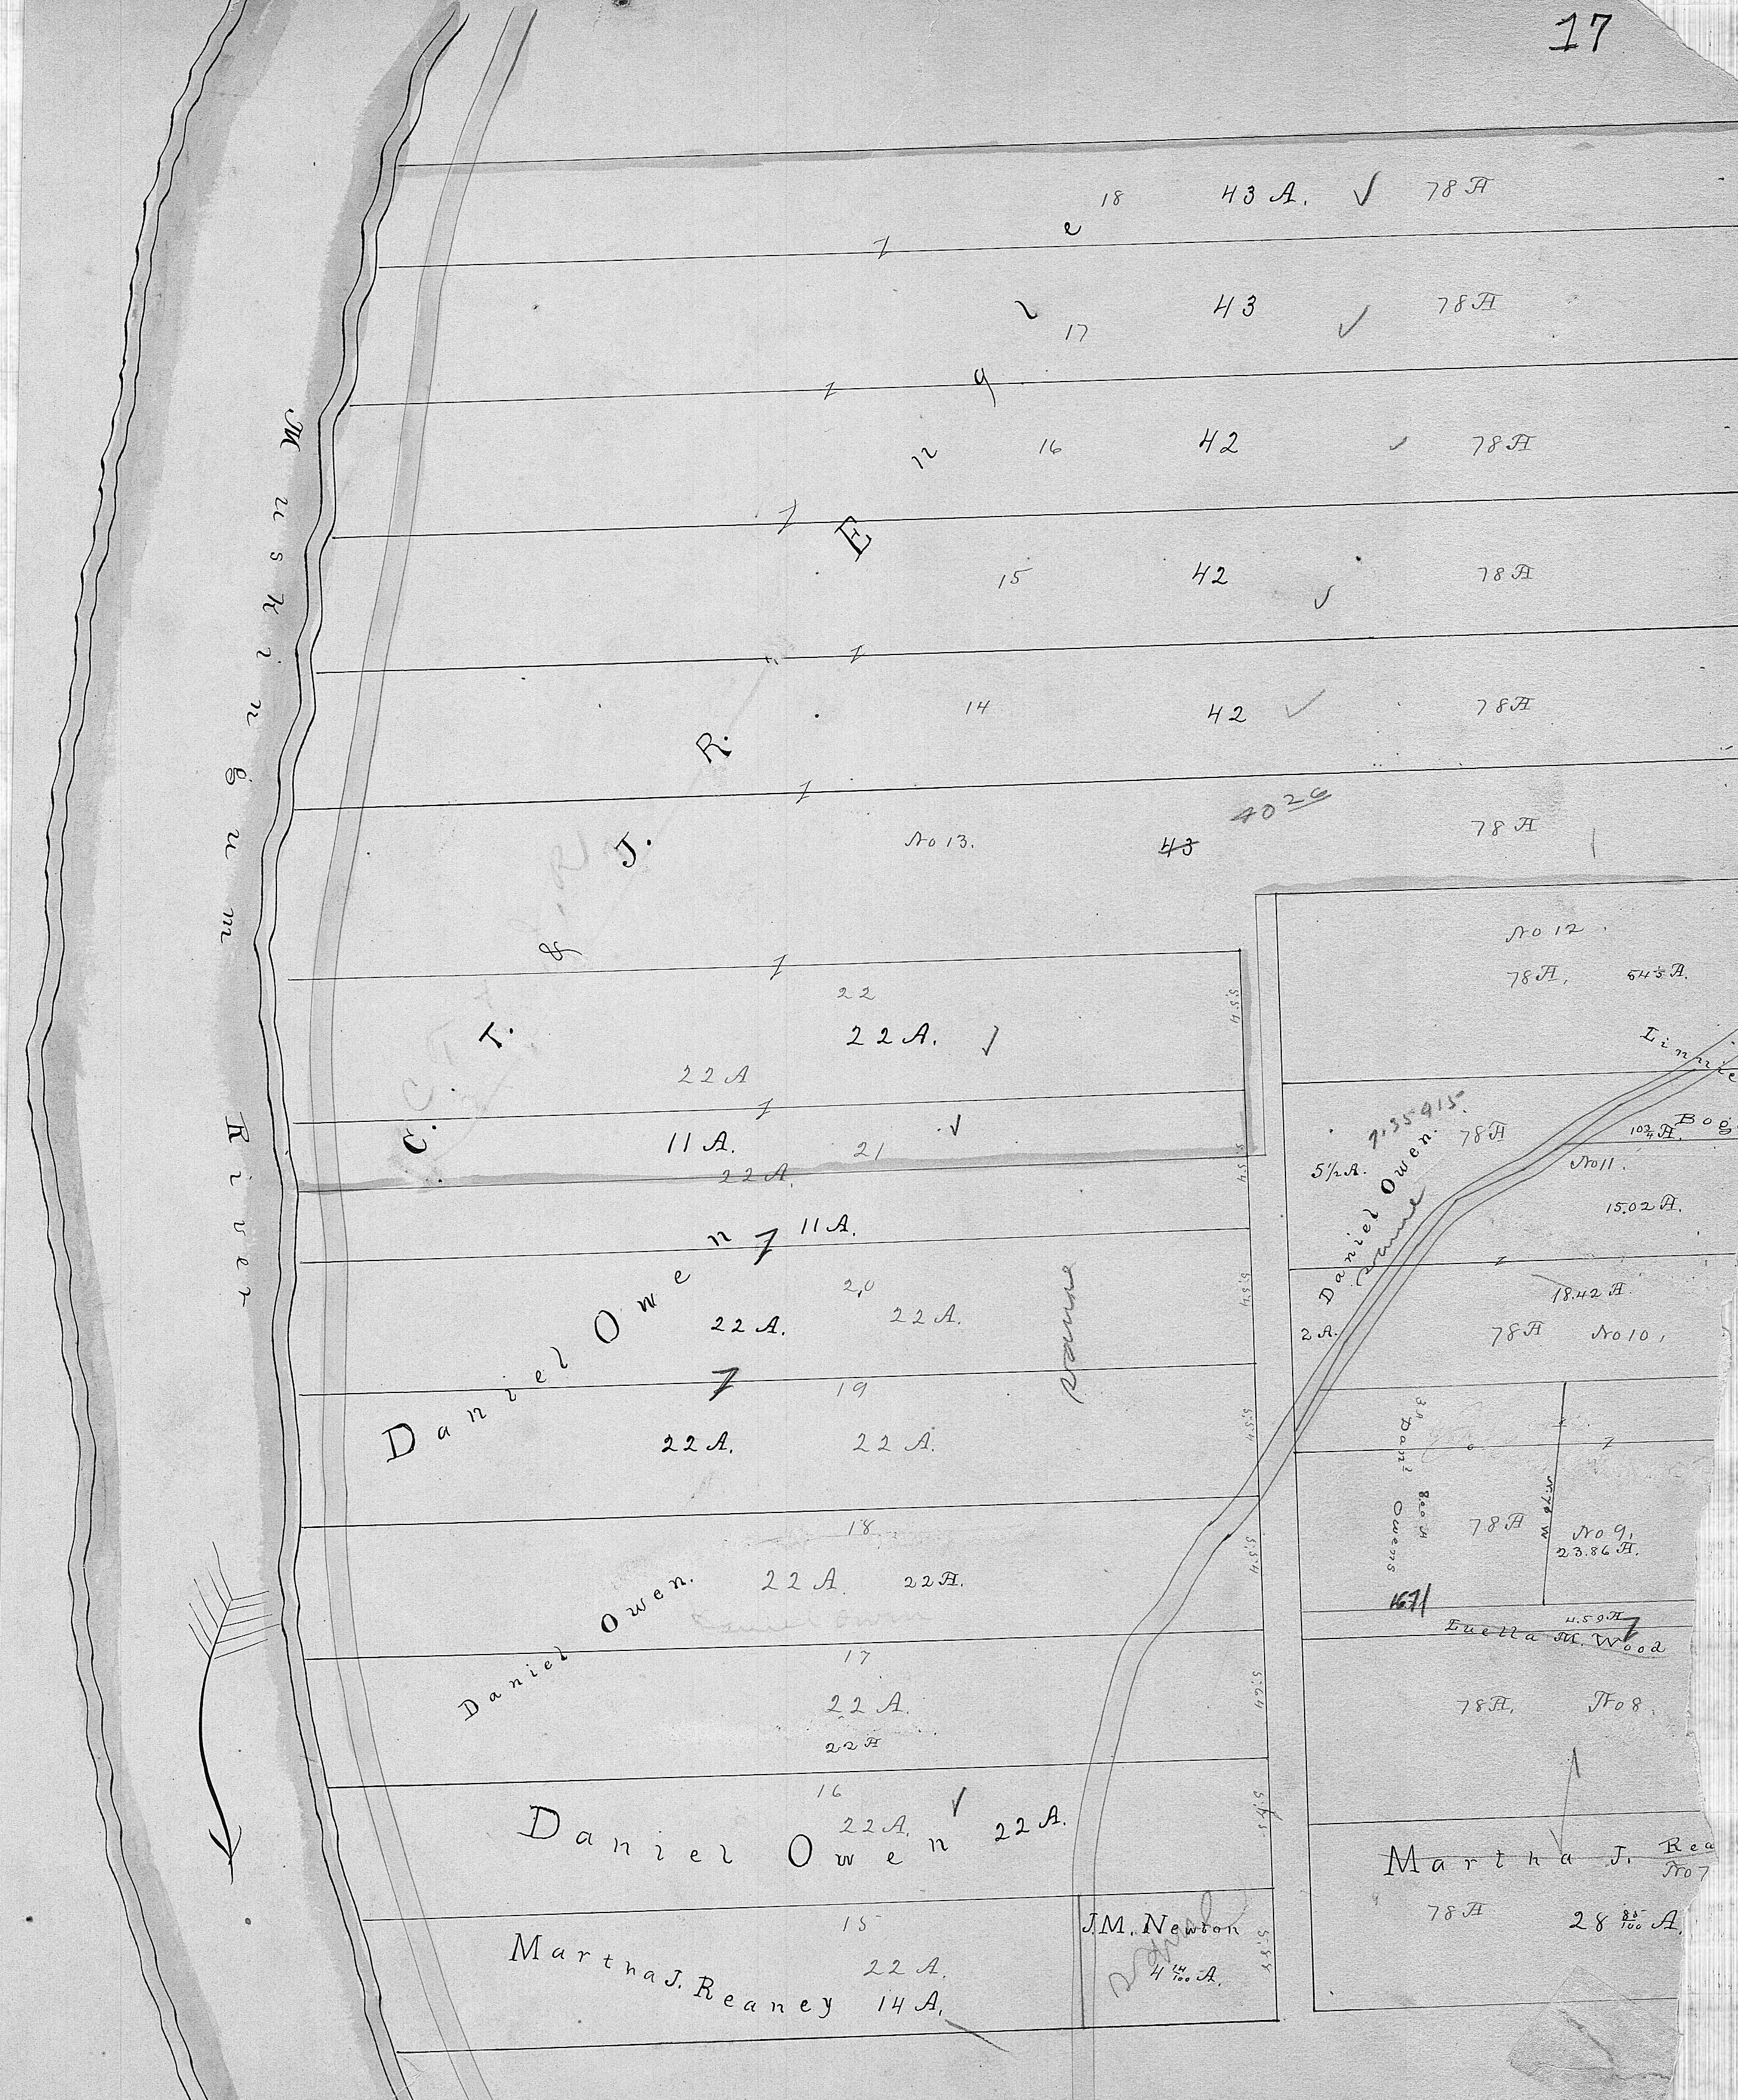 17
18 43 A. 78 A
17 43 78 A
16 42 78 A
15 42 78 A
14 42 78 A
No 13. 43 40 26 78 A
C. T. & J. R. Engle
Muskingum River
No 12
78 A, 54.5 A.
22
22 A.
22 A
5.54
Linnie
Bog
11 A. 21
22 A.
5.54
5 1/2 A.
Daniel Owen.
78 A
No 11.
15.02 A.
Daniel Owen
11 A.
20
22 A. 22 A.
5.54
2 A.
18.42 A.
78 A No 10,
19
22 A. 22 A.
5.54
Danl Owens
8.00 A
78 A
No 9,
23.86 A.
18
22 A. 22 A.
5.54
Daniel Owen.
1671
4.59 A
Luella M. Wood
17
22 A.
22 A
5.64
78 A, No 8.
16
22 A.
Daniel Owen 22 A.
Martha J. Rea
No 7
78 A 28 85/100 A.
15
22 A.
Martha J. Reaney 14 A.
J. M. Newton
4 14/100 A.